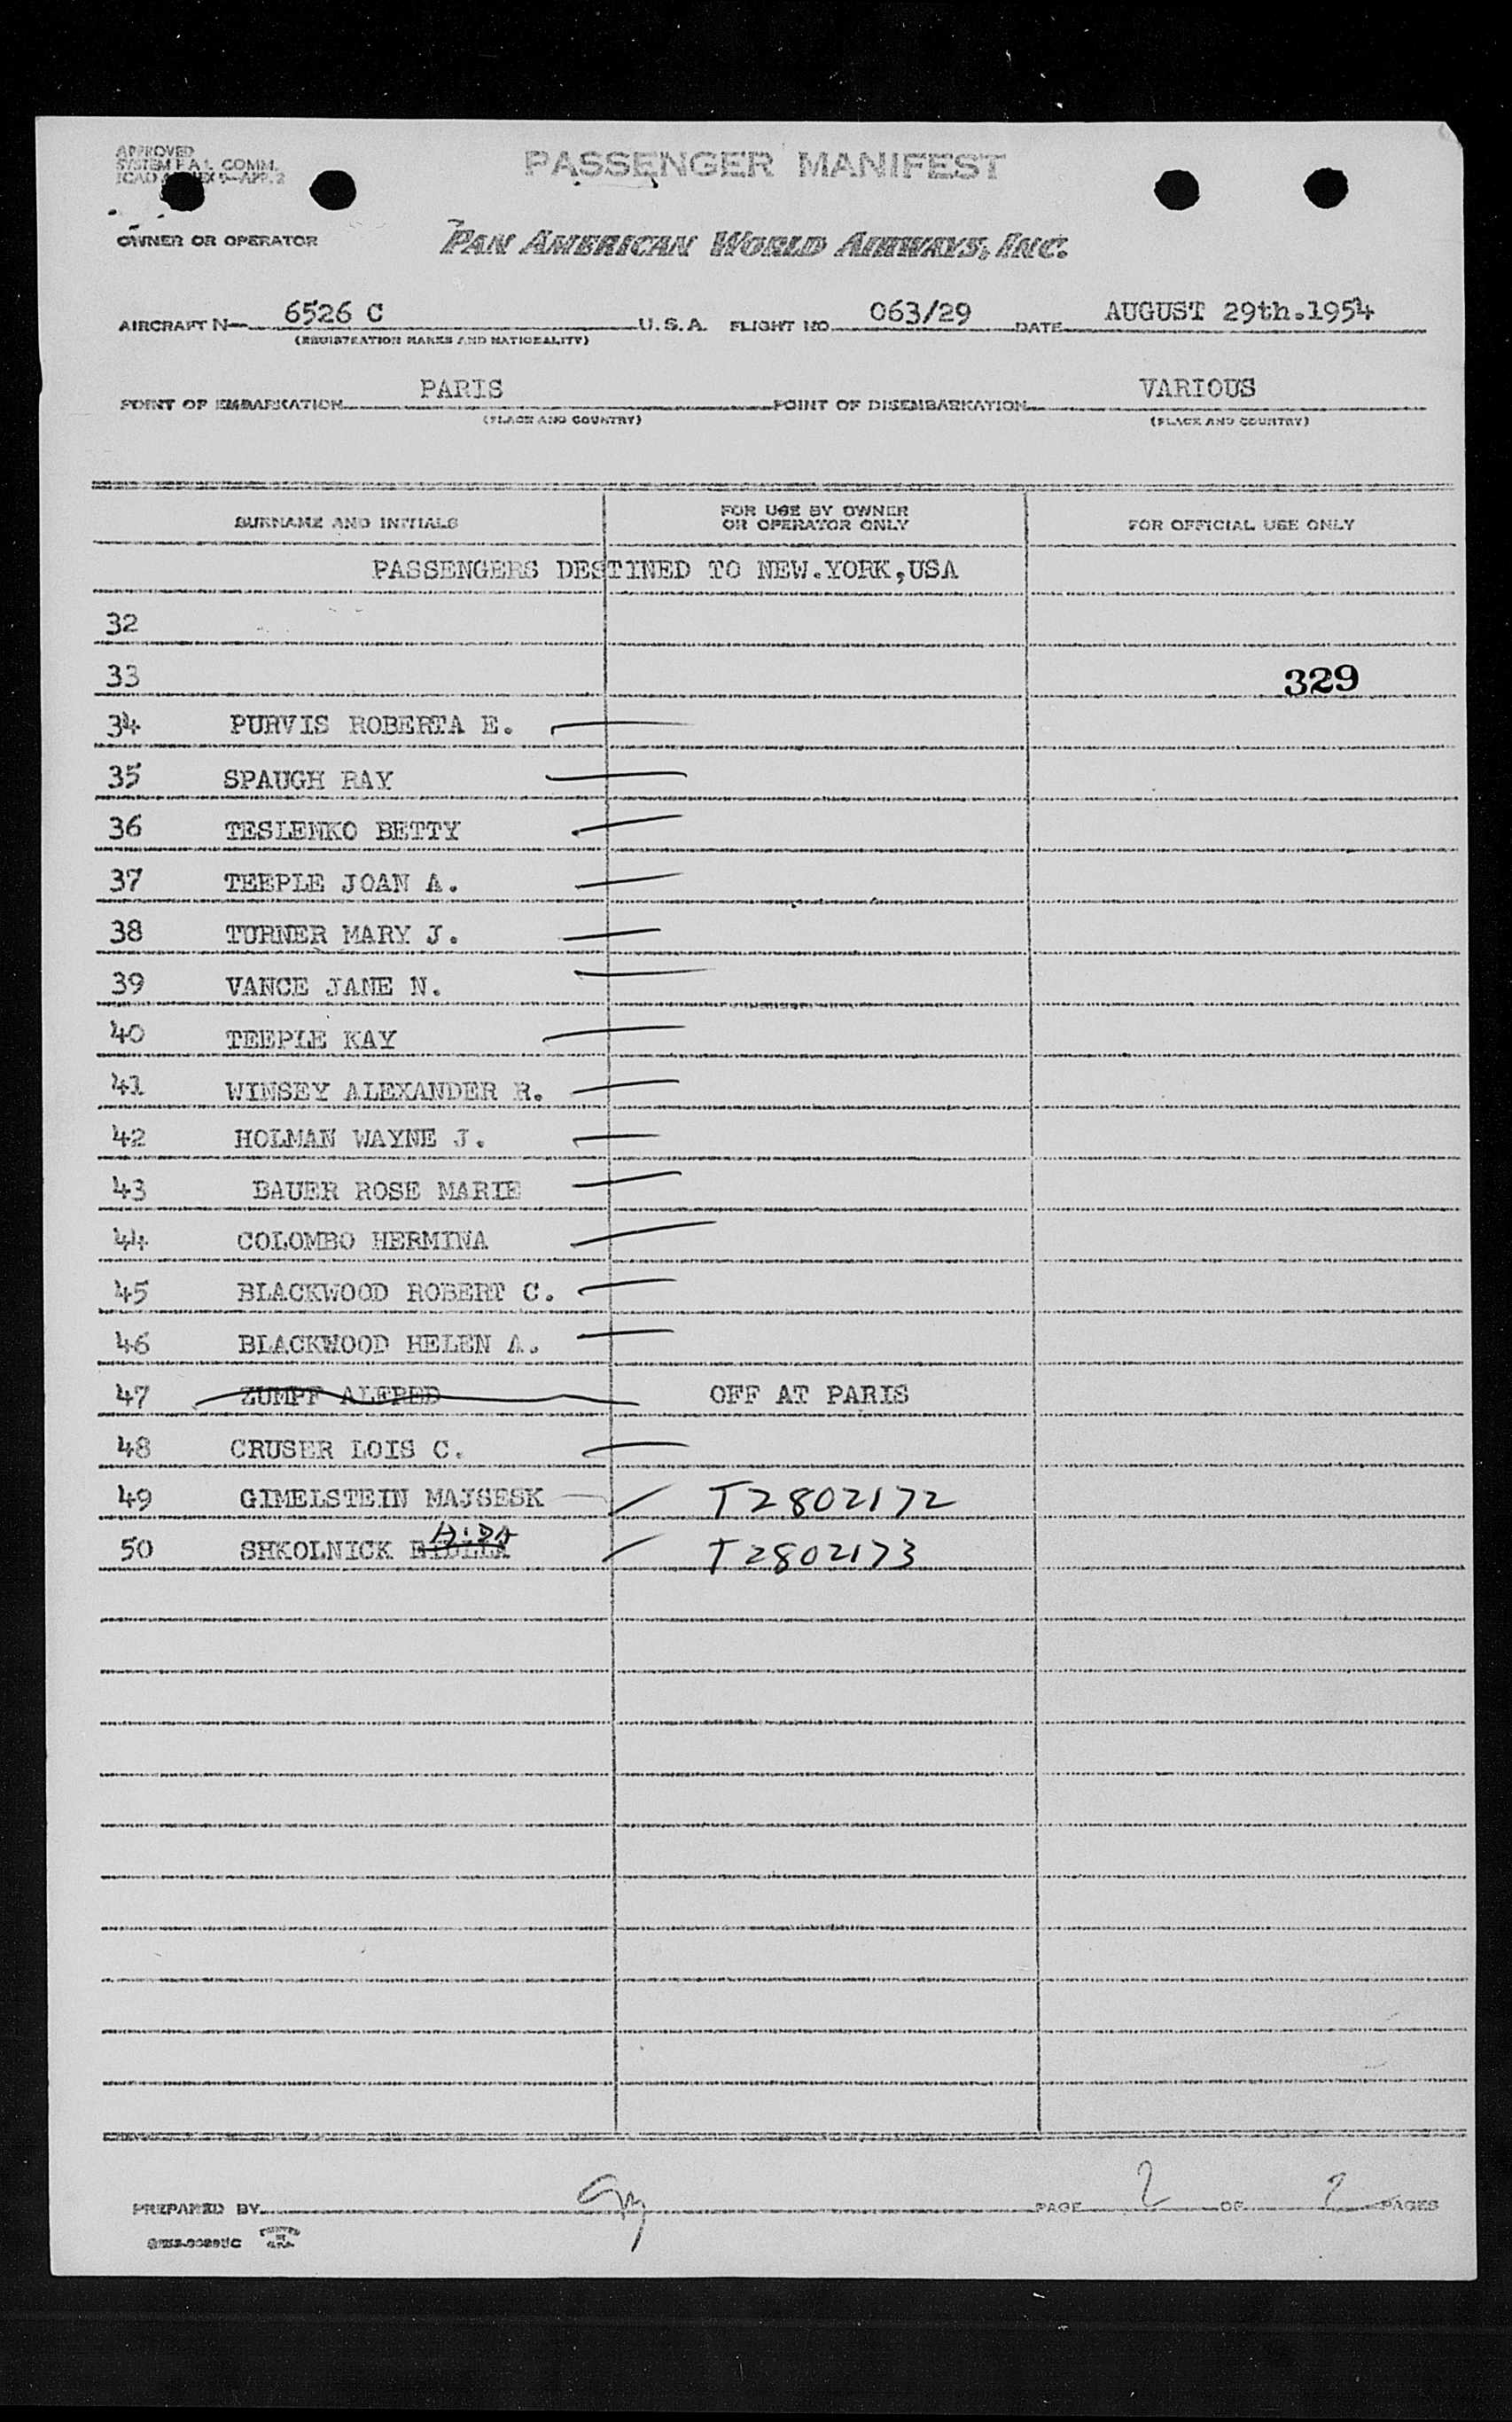 APPROVED
SYSTEM F.A.L. COMM.
ICAO ANNEX 9—APP. 2
PASSENGER MANIFEST
OWNER OR OPERATOR PAN AMERICAN WORLD AIRWAYS, INC.
AIRCRAFT N— 6526 C U.S.A. FLIGHT NO 063/29 DATE AUGUST 29th.1954
(REGISTRATION MARKS AND NATIONALITY)
POINT OF EMBARKATION PARIS POINT OF DISEMBARKATION VARIOUS
(PLACE AND COUNTRY) (PLACE AND COUNTRY)
SURNAME AND INITIALS FOR USE BY OWNER OR OPERATOR ONLY FOR OFFICIAL USE ONLY
PASSENGERS DESTINED TO NEW.YORK,USA
32
33 329
34 PURVIS ROBERTA E.
35 SPAUGH RAY
36 TESLENKO BETTY
37 TEEPLE JOAN A.
38 TURNER MARY J.
39 VANCE JANE N.
40 TEEPLE KAY
41 WINSEY ALEXANDER R.
42 HOLMAN WAYNE J.
43 BAUER ROSE MARIE
44 COLOMBO HERMINA
45 BLACKWOOD ROBERT C.
46 BLACKWOOD HELEN A.
47 ZUMPF ALFRED OFF AT PARIS
48 CRUSER LOIS C.
49 GIMELSTEIN MAJSESK T2802172
50 SHKOLNICK T2802173
PREPARED BY PAGE 2 OF 2 PAGES